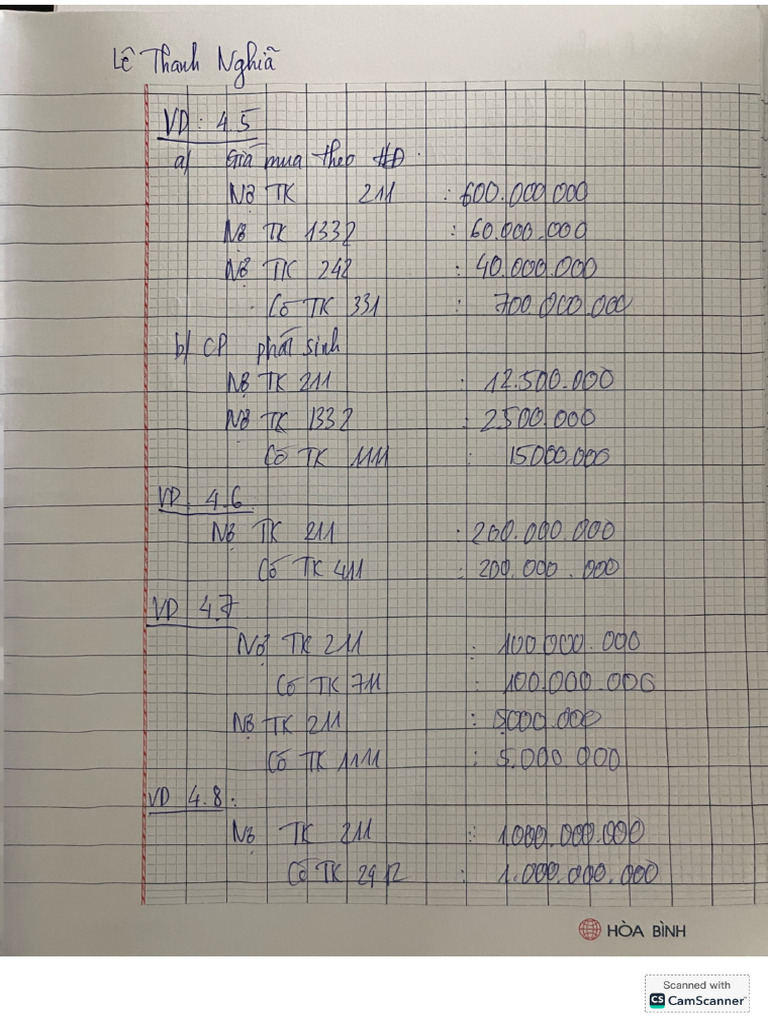 Lê Thanh Nghiã
VD: 4.5
a/ Giá mua theo HĐ.
Nợ TK 211 : 600.000.000
Nợ TK 1332 : 60.000.000
Nợ TK 242 : 40.000.000
Có TK 331 : 700.000.000
b/ CP phát sinh
Nợ TK 211 : 12.500.000
Nợ TK 1332 : 2500.000
Có TK 1111 : 15.000.000
VD 4.6
Nợ TK 211 : 200.000.000
Có TK 411 : 200.000.000
VD 4.7
Nợ TK 211 : 100.000.000
Có TK 711 : 100.000.000
Nợ TK 211 : 5000.000
Có TK 1111 : 5.000.000
VD 4.8:
Nợ TK 211 : 1.000.000.000
Có TK 2412 : 1.000.000.000
HÒA BÌNH
Scanned with
CS CamScanner